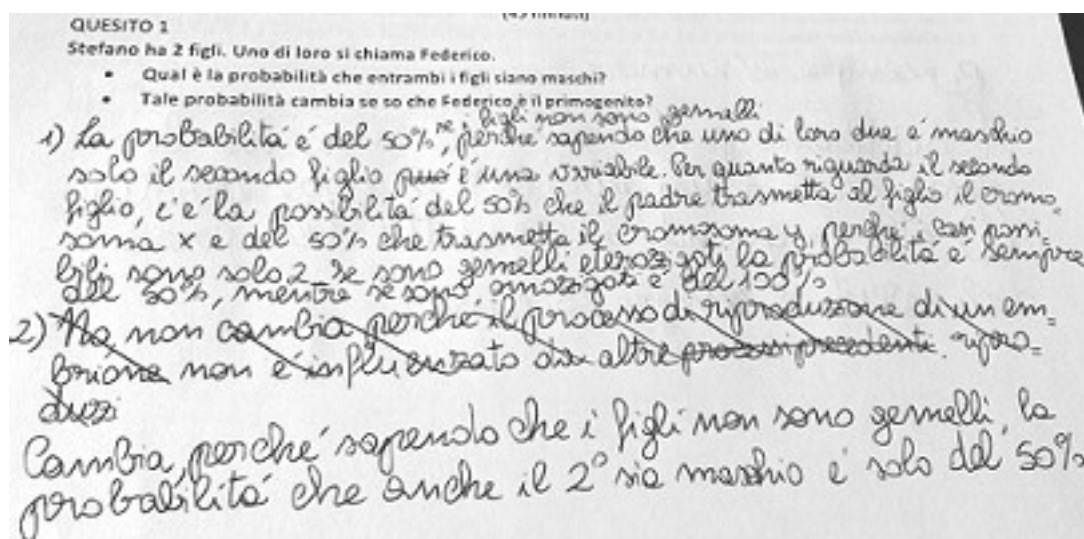 QUESITO 1
Stefano ha 2 figli. Uno di loro si chiama Federico.
• Qual è la probabilità che entrambi i figli siano maschi?
• Tale probabilità cambia se so che Federico è il primogenito?
se i figli non sono gemelli
1) La probabilità é del 50%, perché sapendo che uno di loro due é maschio
solo il secondo figlio é una variabile. Per quanto riguarda il secondo
figlio, c'é la possibilitá del 50% che il padre trasmetta al figlio il cromo
soma x e del 50% che trasmetta il cromosoma y, perché i casi possi=
bili sono solo 2. Se sono gemelli eterozigoti la probabilitá é sempre
del 50%, mentre se sono omozigoti é del 100%
2) No, non cambia perché il processo di riproduzione di un em=
brione non é influenzato da altre processi precedenti. ripro=
duzi
Cambia, perché sapendo che i figli non sono gemelli, la
probabilitá che anche il 2° sia maschio é solo del 50%